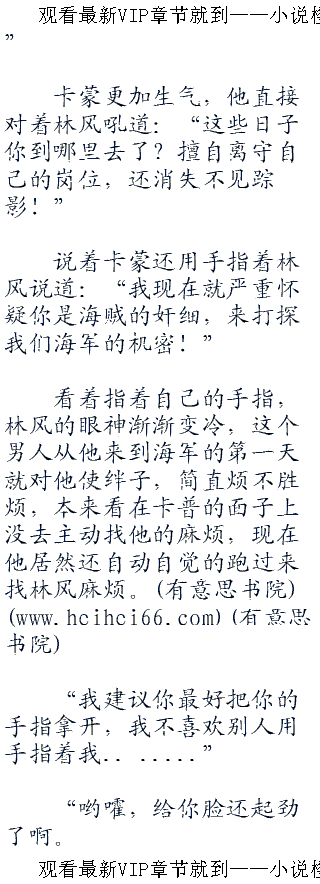 观看最新VIP章节就到——小说
”
卡蒙更加生气，他直接
对着林风吼道：“这些日子
你到哪里去了？擅自离守自
己的岗位，还消失不见踪
影！”
说着卡蒙还用手指着林
风说道：“我现在就严重怀
疑你是海贼的奸细，来打探
我们海军的机密！”
看着指着自己的手指，
林风的眼神渐渐变冷，这个
男人从他来到海军的第一天
就对他使绊子，简直烦不胜
烦，本来看在卡普的面子上
没去主动找他的麻烦，现在
他居然还自动自觉的跑过来
找林风麻烦。(有意思书院)
(www.hcihci66.com)(有意思
书院)
“我建议你最好把你的
手指拿开，我不喜欢别人用
手指着我.. .....”
“哟嚯，给你脸还起劲
了啊。
观看最新VIP章节就到——小说